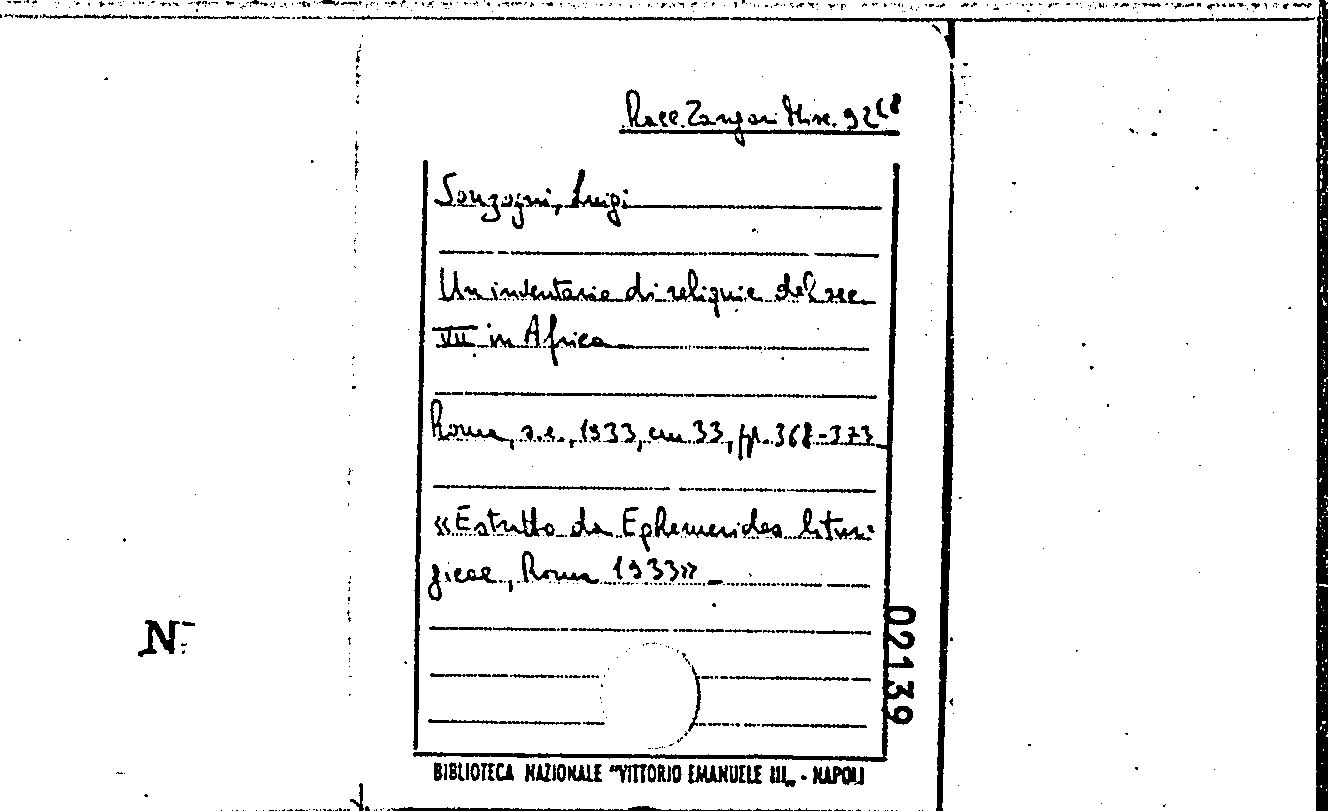 Racc. Zangari Misc. 92
Sonzogni, Luigi
Un inventario di reliquie del sec.
VII in Africa
Roma, s.e., 1933, cm 33, pp. 368-373
«Estratto da Ephemerides litur-
gicae, Roma 1933»
N.
02139
BIBLIOTECA NAZIONALE "VITTORIO EMANUELE III„ - NAPOLI